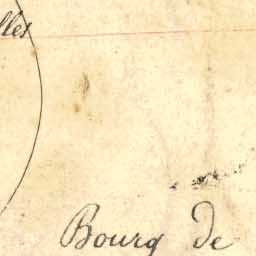 lles
Bourg de